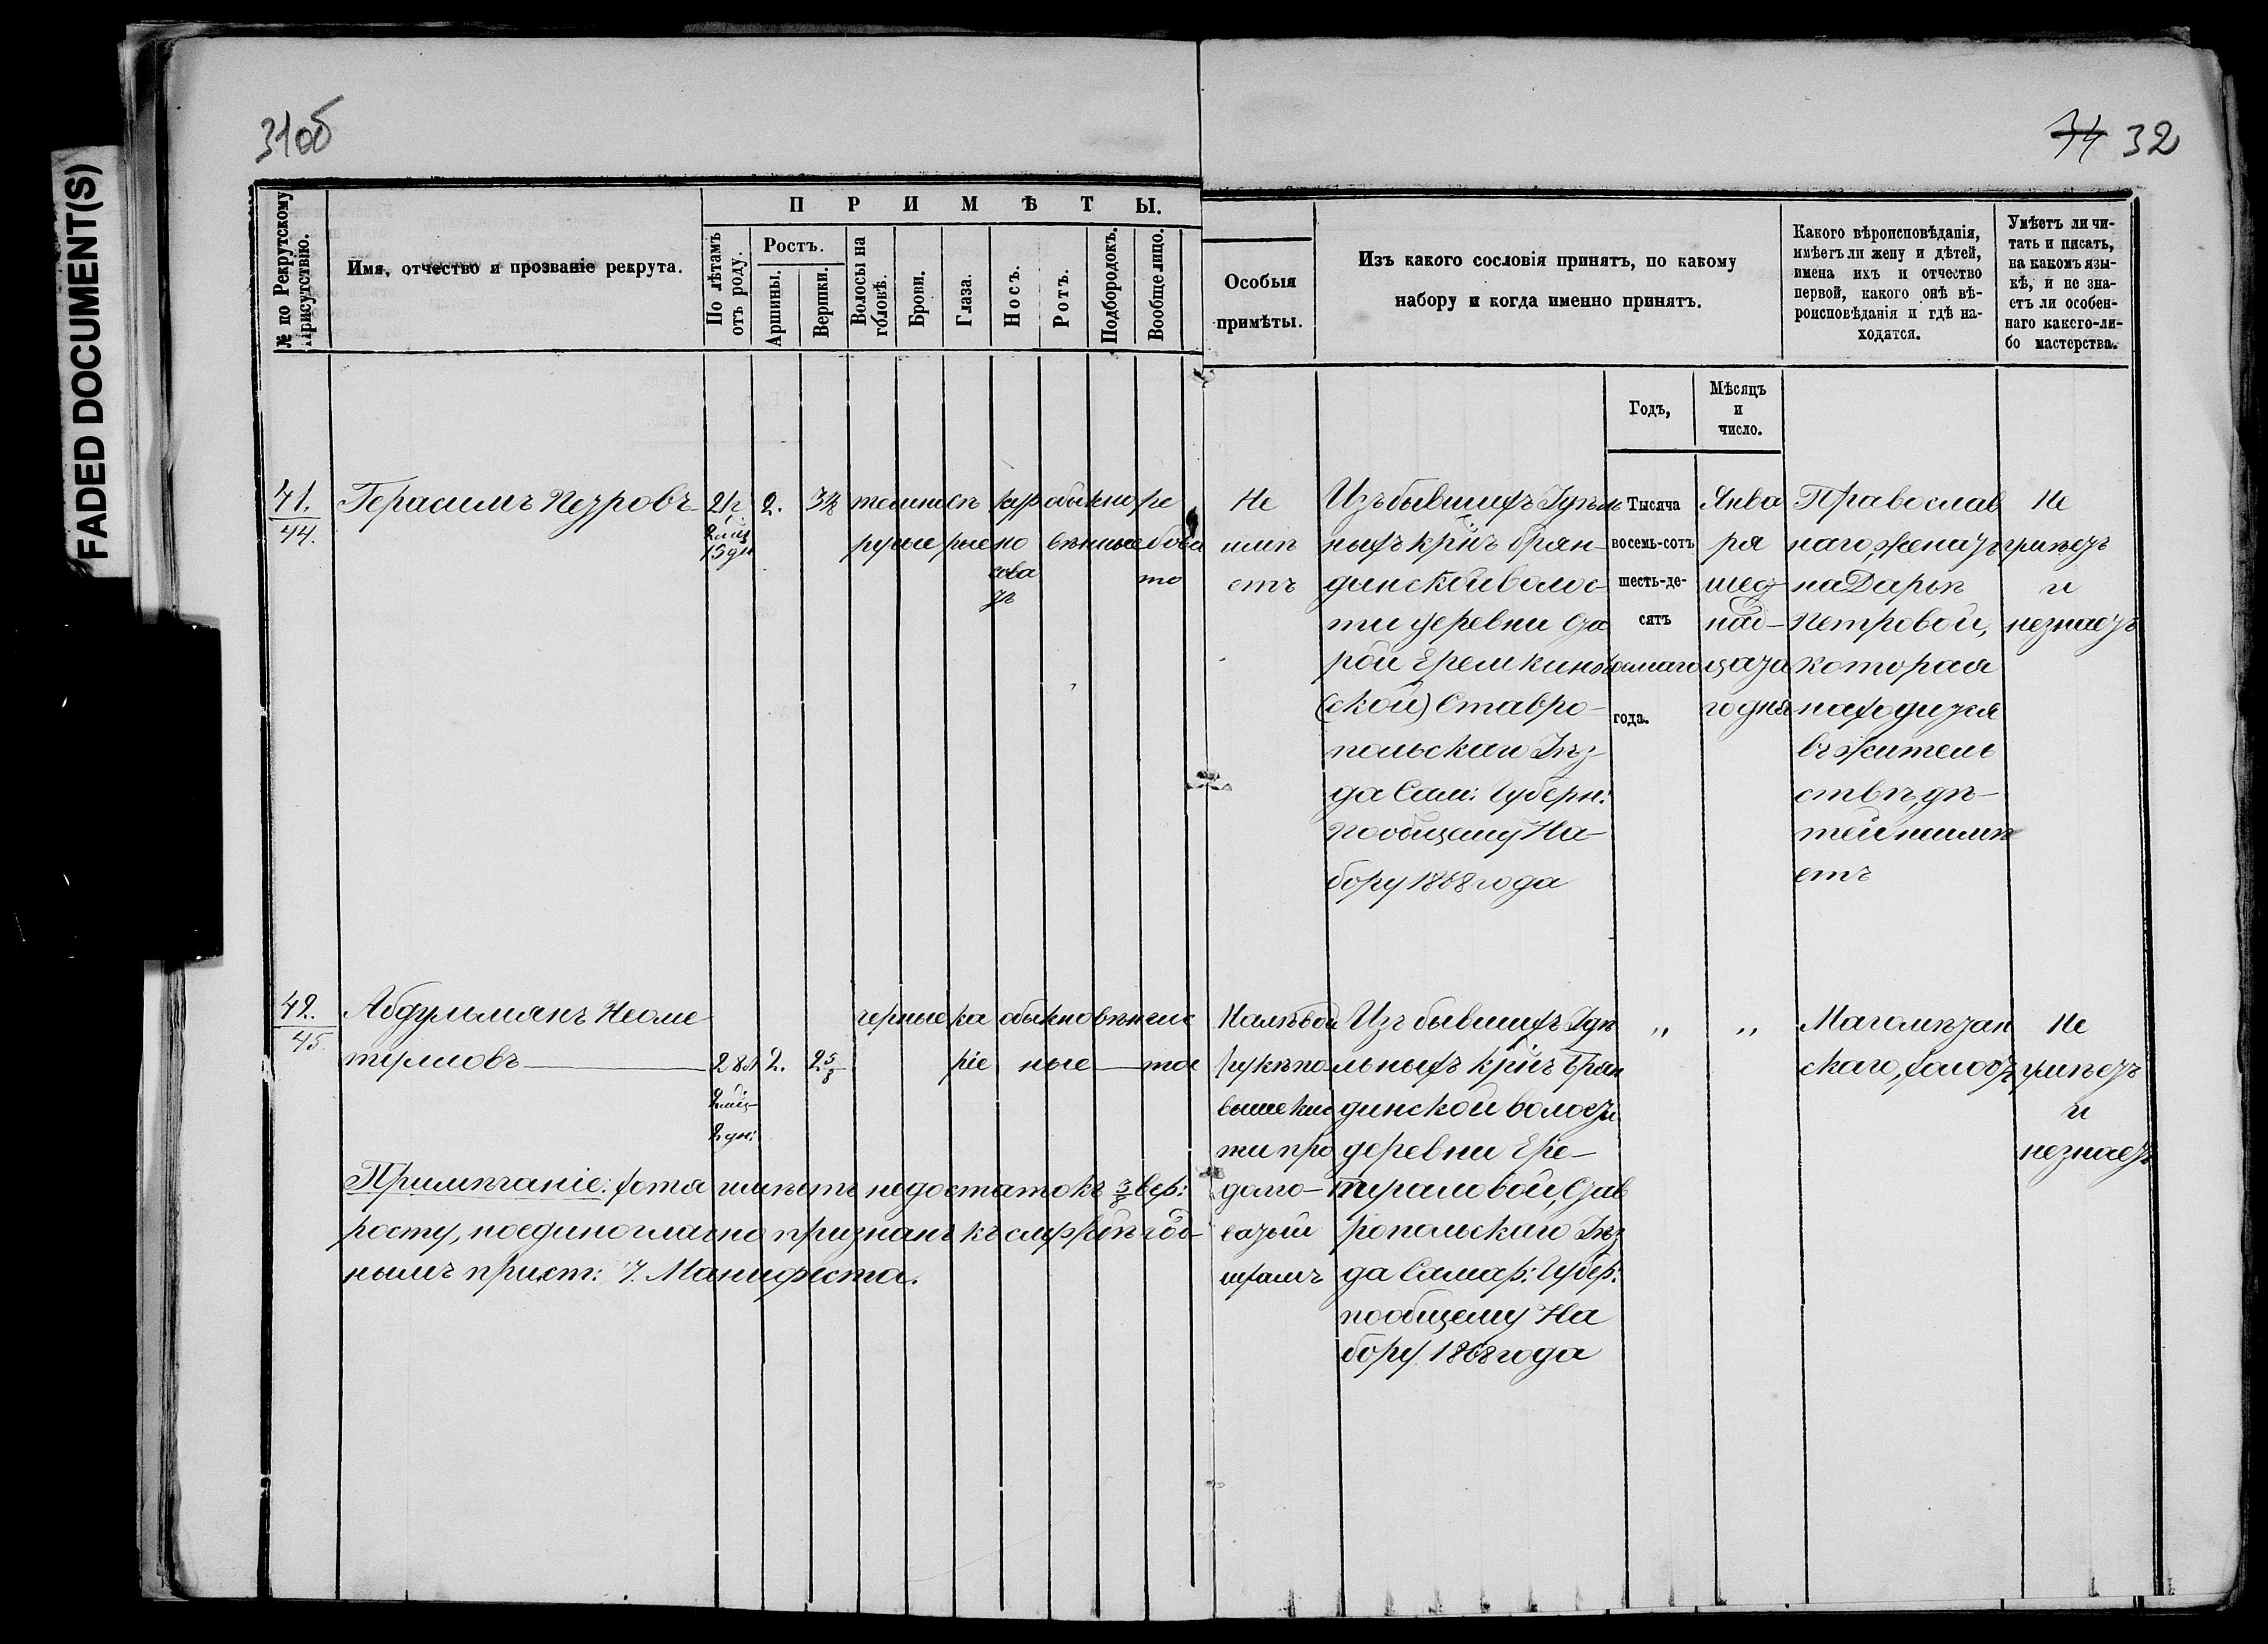 FADED DOCUMENT(S)
31об
34 32
№ по Рекрутскому присутствію.
Имя, отчество и прозваніе рекрута.
ПРИМѢТЫ.
По лѣтамъ отъ роду.
Ростъ.
Аршины.
Вершки.
Волосы на головѣ.
Брови.
Глаза.
Носъ.
Ротъ.
Подбородокъ.
Вообще лицо.
Особыя
примѣты.
Изъ какого сословія принятъ, по какому
набору и когда именно принятъ.
Годъ,
Мѣсяцъ
и
число.
Какого вѣроисповѣданія,
имѣетъ ли жену и дѣтей,
имена ихъ и отчество
первой, какого онѣ вѣ-
роисповѣданія и гдѣ на-
ходятся.
Умѣетъ ли чи-
тать и писать,
на какомъ язы-
кѣ, и не зна-
етъ ли особен-
наго какого-ли-
бо мастерства.
41.
44.
Герасимъ Петровъ
2.
темно
русые
сѣ
рые
кур
но
сова
тъ
обыкно
вѣнные
ре
бова
то
Не
имѣ
етъ
Изъ бывшихъ Удѣль
ныхъ крнъ Брян-
динской волос-
ти деревни Ста
рой Еремкин
(ской) Ставро-
польскаго Уѣз-
да Сам: Губерн:
по общему На-
бору 1868 года
Тысяча
восемь-сотъ
шесть-де-
сятъ
года.
Янва
ря
шест
над-
цата
го дня
Православ
наго, женатъ
на Дарьѣ
Петровой,
которая
находится
въ житель
ствѣ, дѣ-
тей неимѣ
етъ
Не
умѣетъ
и
незнаетъ
42.
45.
Абдульманъ Неаме
тулловъ
2.
2 5/8
черные
ка
ріе
обыкновѣн
ные
чис
тое
На лѣвой
рукѣ по
выше кис
ти про
долго-
ватый
шрамъ
Изъ бывшихъ Удѣ
льныхъ крнъ Брян
динской волости
деревни
Став
ропольскаго Уѣз
да Самар: Губер:
по общему На
бору 1868 года
„
„
Магомѣтан
скаго, холостъ
Не
умѣетъ
и
незнаетъ
Примѣчаніе: хотя имѣетъ недостатокъ 3/8 вер:
росту, но единогласно признанъ къ службѣ год-
нымъ 7. Манифеста.